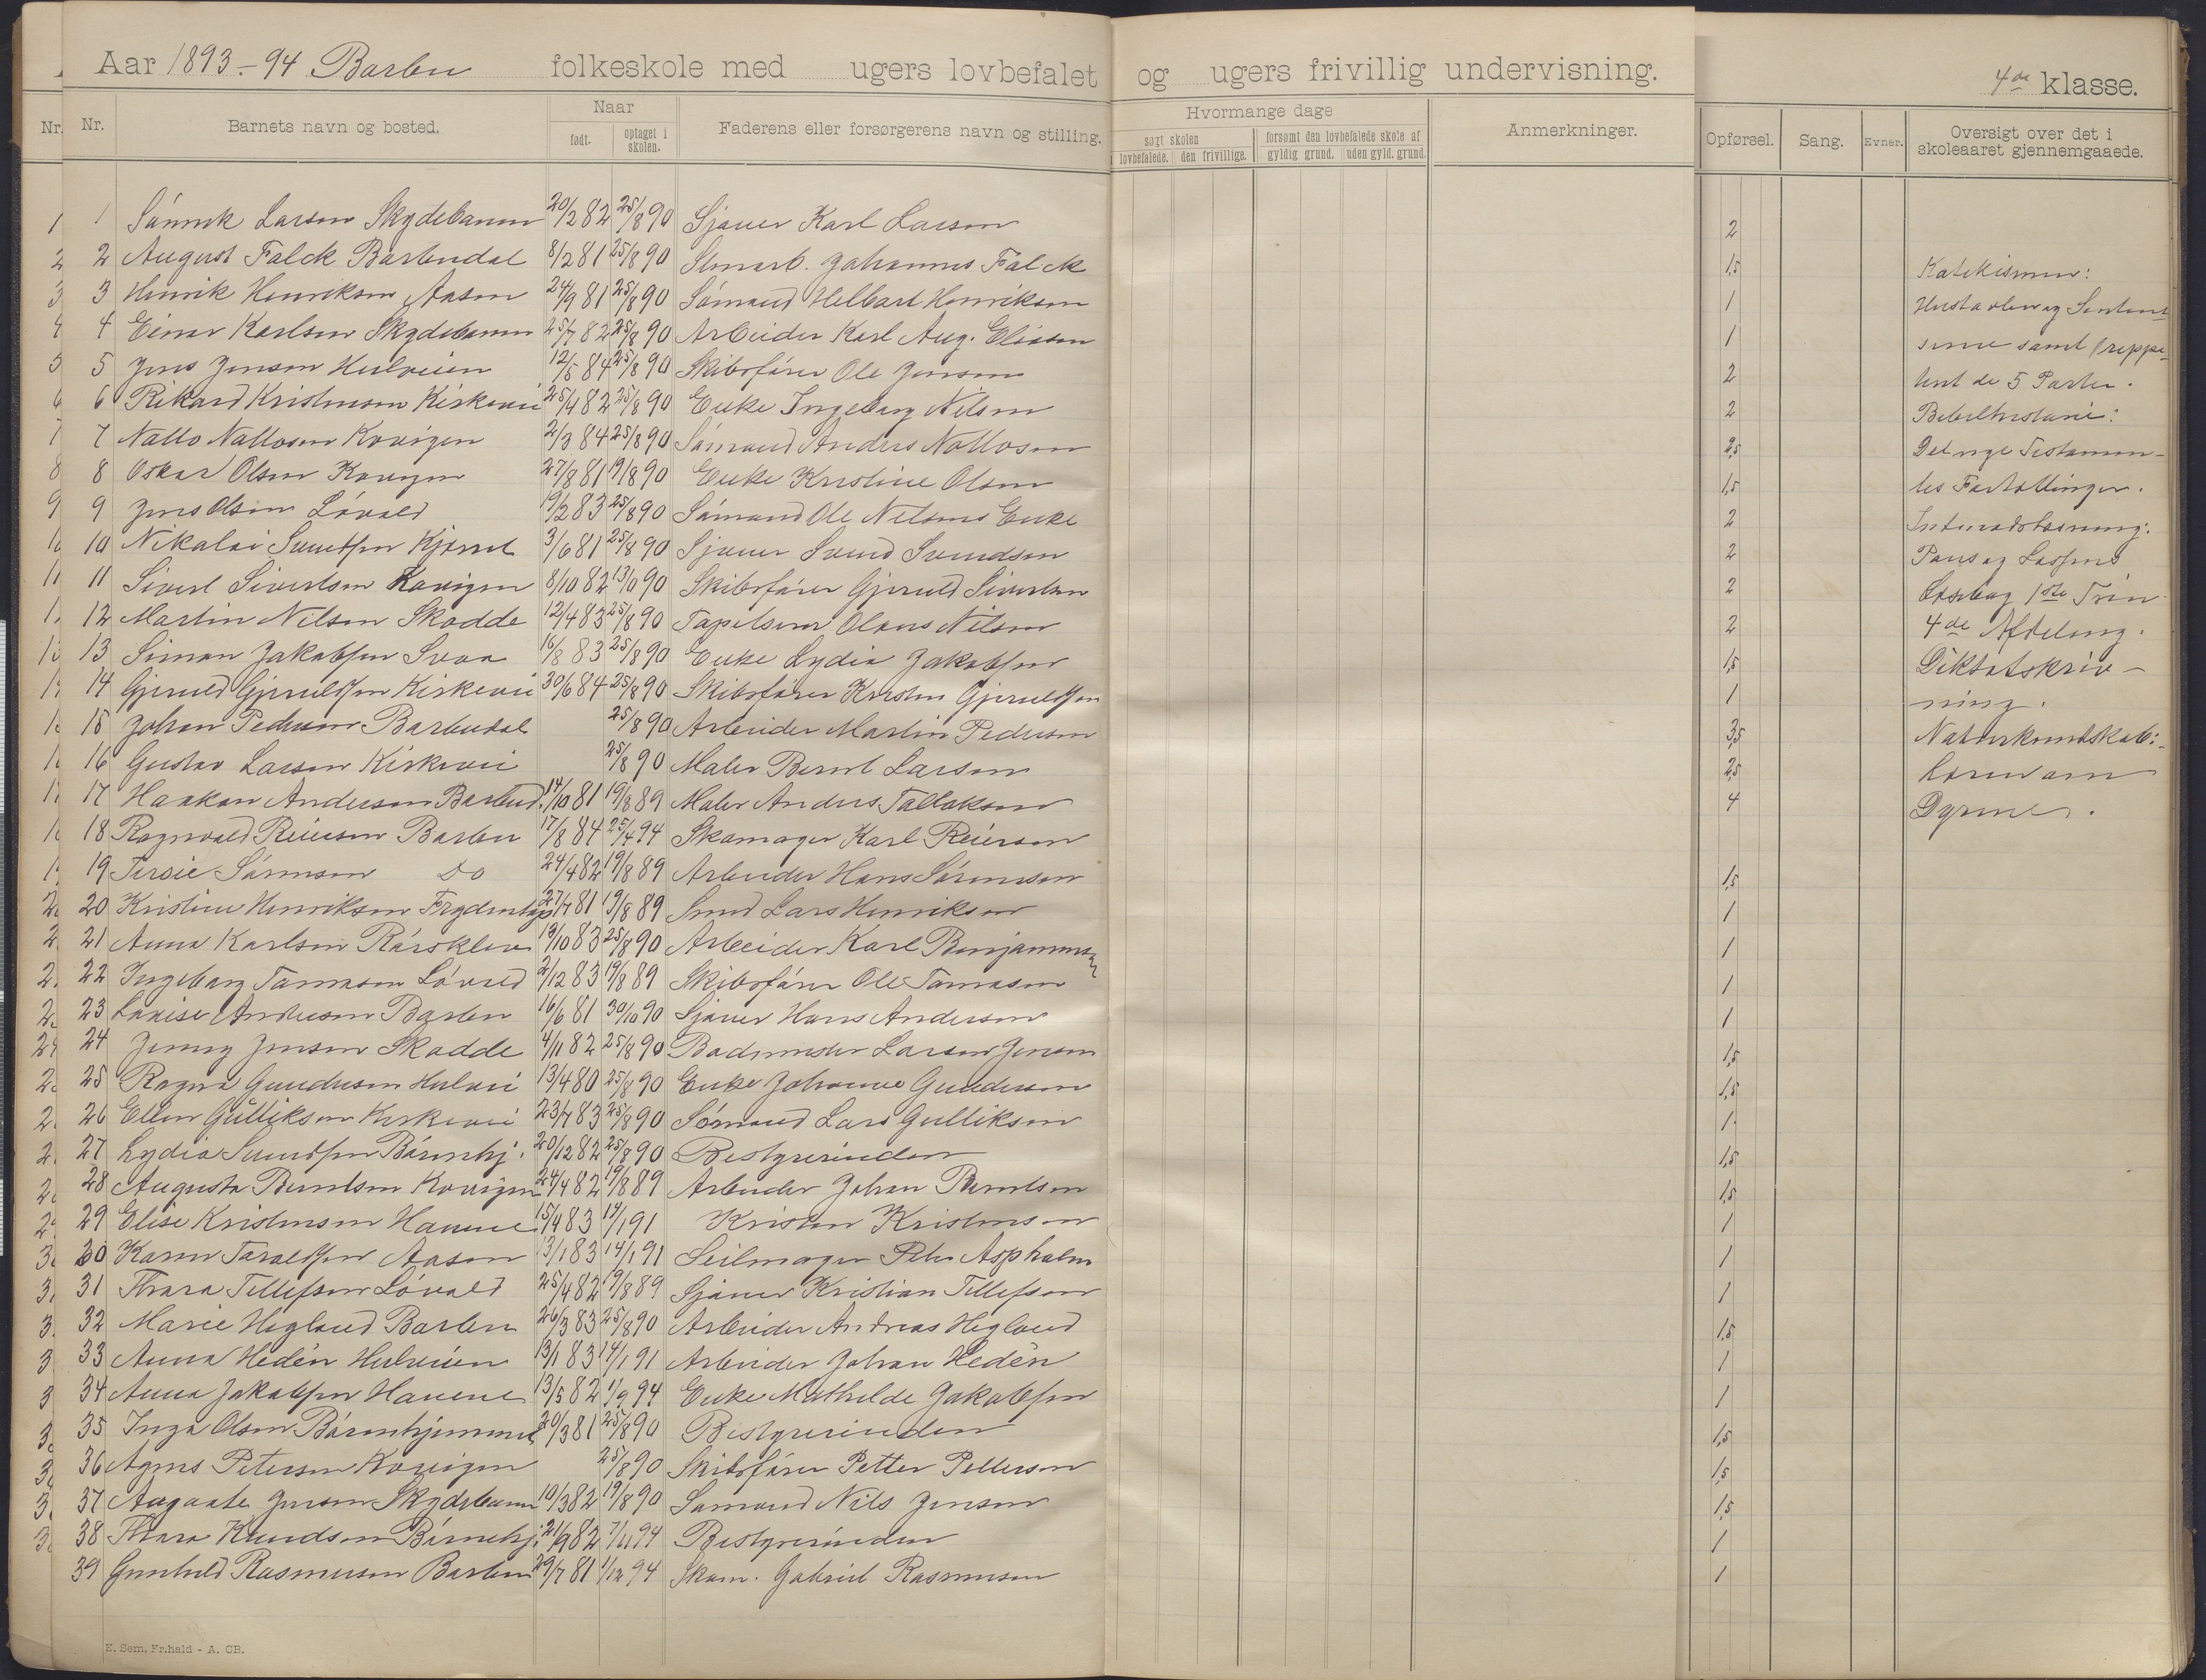 Aar 1893-94 Barbu folkeskole med ugers lovbefalet og ugers frivillig undervisning.
4de klasse.
Nr. Nr. Barnets navn og bosted. Naar født. optaget i skolen. Faderens eller forsørgerens navn og stilling. Hvormange dage søgt skolen lovbefalede. den frivillige. forsømt den lovbefalede skole af gyldig grund. uden gyld. grund. Anmerkninger. Opførsel. Sang. Evner. Oversigt over det i skoleaaret gjennemgaaede.
1 1 Larsen Skydebanen 20/2 82 25/8 90 Sjauer Karl Larsen 2
2 2 August Falck Barbudal 8/2 81 25/8 90 Johannes Falck 1,5 Katekismen:
3 3 Henrik Henriksen Aasen 24/9 81 25/8 90 Sømand Helbart Henriksen 1 Hustavlen og
4 4 Einar Karlsen Skydebanen 25/7 82 25/8 90 Arbeider Karl Aug. Eliasen 1 samt reppe-
5 5 Jens Jensen Hulveien 12/5 84 25/8 90 Skibsfører Ole Jensen 2 tert de 5 Parter.
6 6 Rikard Kristensen Kirkevei 25/4 82 25/8 90 Enke Ingeborg Nilsen 2 Bibelhistorie:
7 7 Natto Nattosen Kovigen 2/3 84 25/8 90 Sømand Anders Nattosen 2,5 Det nye Testamen-
8 8 Oskar Olsen Kovigen 27/8 81 19/8 90 Enke Kristine Olsen 1,5 tes Fortællinger.
9 9 Jens Olsen Løvold 19/2 83 25/8 90 Sømand Ole Nilsens Enke 2
10 Nikolai Svendsen 3/6 81 25/8 90 Sjauer Svend Svendsen 2 Pauss og Lassens
11 11 Sivert Sivertsen Kovigen 8/10 82 13/10 90 Skibsfører Gjeruld Sivertsen 2 Læsebog 1ste Trin
12 Martin Nilsen Skodde 12/4 83 25/8 90 Tapetserer Olaus Nilsen 2 4de Afdeling.
13 Simon Jakobsen Svaa 16/8 83 25/8 90 Enke Lydia Jakobsen 1,5 Diktatskriv-
14 Gjeruld Gjeruldsen Kirkevei 30/6 84 25/8 90 Skibsfører Kristen Gjeruldsen 1 ning.
15 Johan Pedersen Barbudal 25/8 90 Arbeider Martin Pedersen 3,5 Naturkundskab:
16 Gustav Larsen Kirkevei 25/8 90 Maler Bernt Larsen 2,5
17 Haakon Andersen Barbud. 14/10 81 19/8 89 Maler Anders Tallaksen 4 Dyrene.
18 Ragnvald Reiersen Barbu 17/8 84 25/4 94 Skomager Karl Reiersen
19 Sørensen Do 24/4 82 19/8 89 Arbeider Hans Sørensen 1,5
20 Kristine Henriksen 27/7 81 19/8 89 Smed Lars Henriksen 1
21 Anna Karlsen Rørskleiv 13/10 83 25/8 90 Arbeider Karl Benjaminsen 1
22 Ingeborg Tomasen Løvold 2/12 83 19/8 89 Skibsfører Ole Tomasen 1
23 Lovise Andersen Barbu 16/6 81 30/10 90 Sjauer Hans Andersen 1
24 Jenny Jensen Skodde 4/11 82 25/8 90 Bademester Larsen Jensen 1,5
25 Ragna Gundersen Hulvei 13/4 80 25/8 90 Enke Johanne Gundersen 1,5
26 Ellen Gulliksen Kirkevei 23/7 83 25/8 90 Sømand Lars Gulliksen 1
27 Lydia Svendsen Børnehj. 20/12 82 25/8 90 Bestyrerinden 1,5
28 Augusta Berntsen Kovigen 24/4 82 19/8 89 Arbeider Johan Berntsen 1,5
29 Elise Kristensen Havene 15/4 83 14/1 91 Kristen Kristensen 1
30 Karen Taraldsen Aasen 3/1 83 14/1 91 Seilmager Peter Aspholm 1
31 Thora Tellefsen Løvold 25/4 82 19/8 89 Sjauer Kristian Tellefsen 1
32 Marie Hegland Barbu 26/3 83 25/8 90 Arbeider Andreas Hegland 1,5
33 Anna Hedén Hulveien 13/1 83 14/1 91 Arbeider Johan Hedén 1
34 Anna Jakobsen Havene 13/5 82 1/9 94 Enke Mathilde Jakobsen 1
35 Inga Olsen Børnehjemmet 20/3 81 25/8 90 Bestyrerinden 1,5
36 Agnes Petersen Kovigen 25/8 90 Skibsfører Petter Pettersen 1,5
37 Jensen Skydebanen 10/3 82 19/8 90 Sømand Nils Jensen 1,5
38 Thora Knudsen Børnehj. 21/9 82 7/11 94 Bestyrerinden 1
39 Gunhild Rasmussen Barbu 29/7 81 1/12 94 Skom. Gabriel Rasmussen 1
E. Sem, Fr.hald - A. CB.